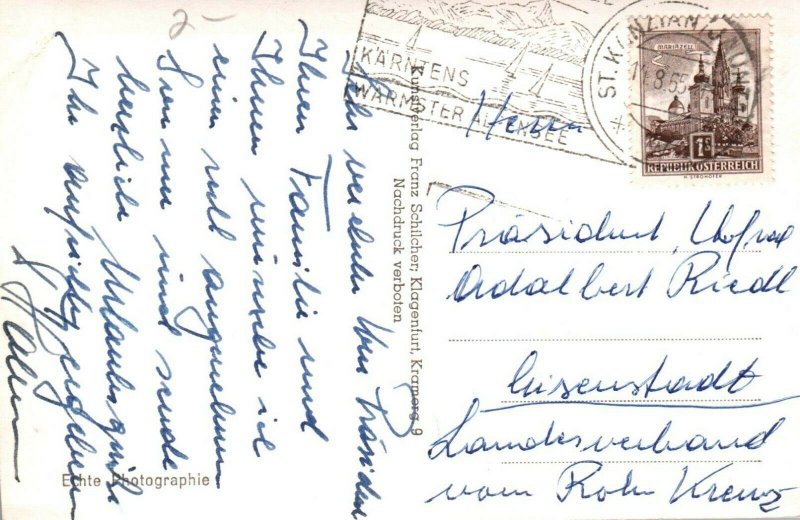 2-
Sehr verehrter Herr Präsident
Ihnen Familie und
Ihnen wünsche ich
einen recht angenehmen
und sende
herzliche Urlaubsgrüße
Ihr aufrichtig ergebener
Echte Photographie
Kunstverlag Franz Schilcher, Klagenfurt, Kramerg. 9
Nachdruck verboten
KÄRNTENS
WÄRMSTER ALPENSEE
ST. KANZIAN
8.65
MARIAZELL
1S
REPUBLIK ÖSTERREICH
H. STROHOFER
Herrn
Präsident, Hofrat
Adalbert Riedl
Eisenstadt
Landesverband
vom Roten Kreuz